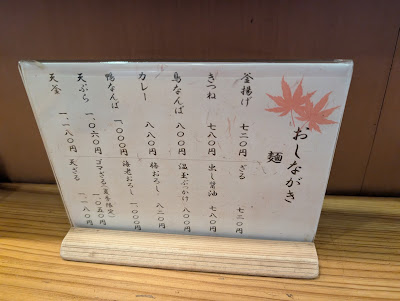 おしながき
麺
釜揚げ 七二〇円
きつね 七八〇円
鳥なんば 八〇〇円
カレー 八八〇円
鴨なんば 一、〇〇〇円
天ぷら 一、〇六〇円
天釜 一、一八〇円
ざる 七二〇円
出し醤油 七八〇円
温玉ぶっかけ 八〇〇円
梅おろし 八二〇円
海老おろし 一、〇〇〇円
ゴマざる(夏季限定) 一、〇五〇円
天ざる 一、一八〇円